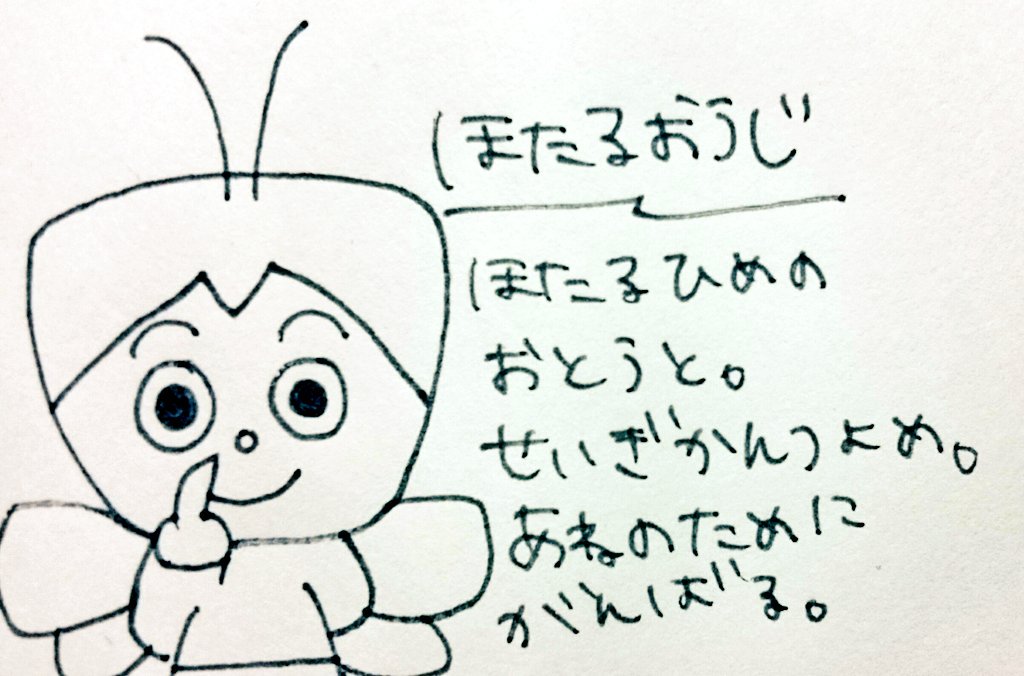 ほたるおうじ
ほたるひめの
おとうと。
せいぎかんつよめ。
あねのために
がんばる。